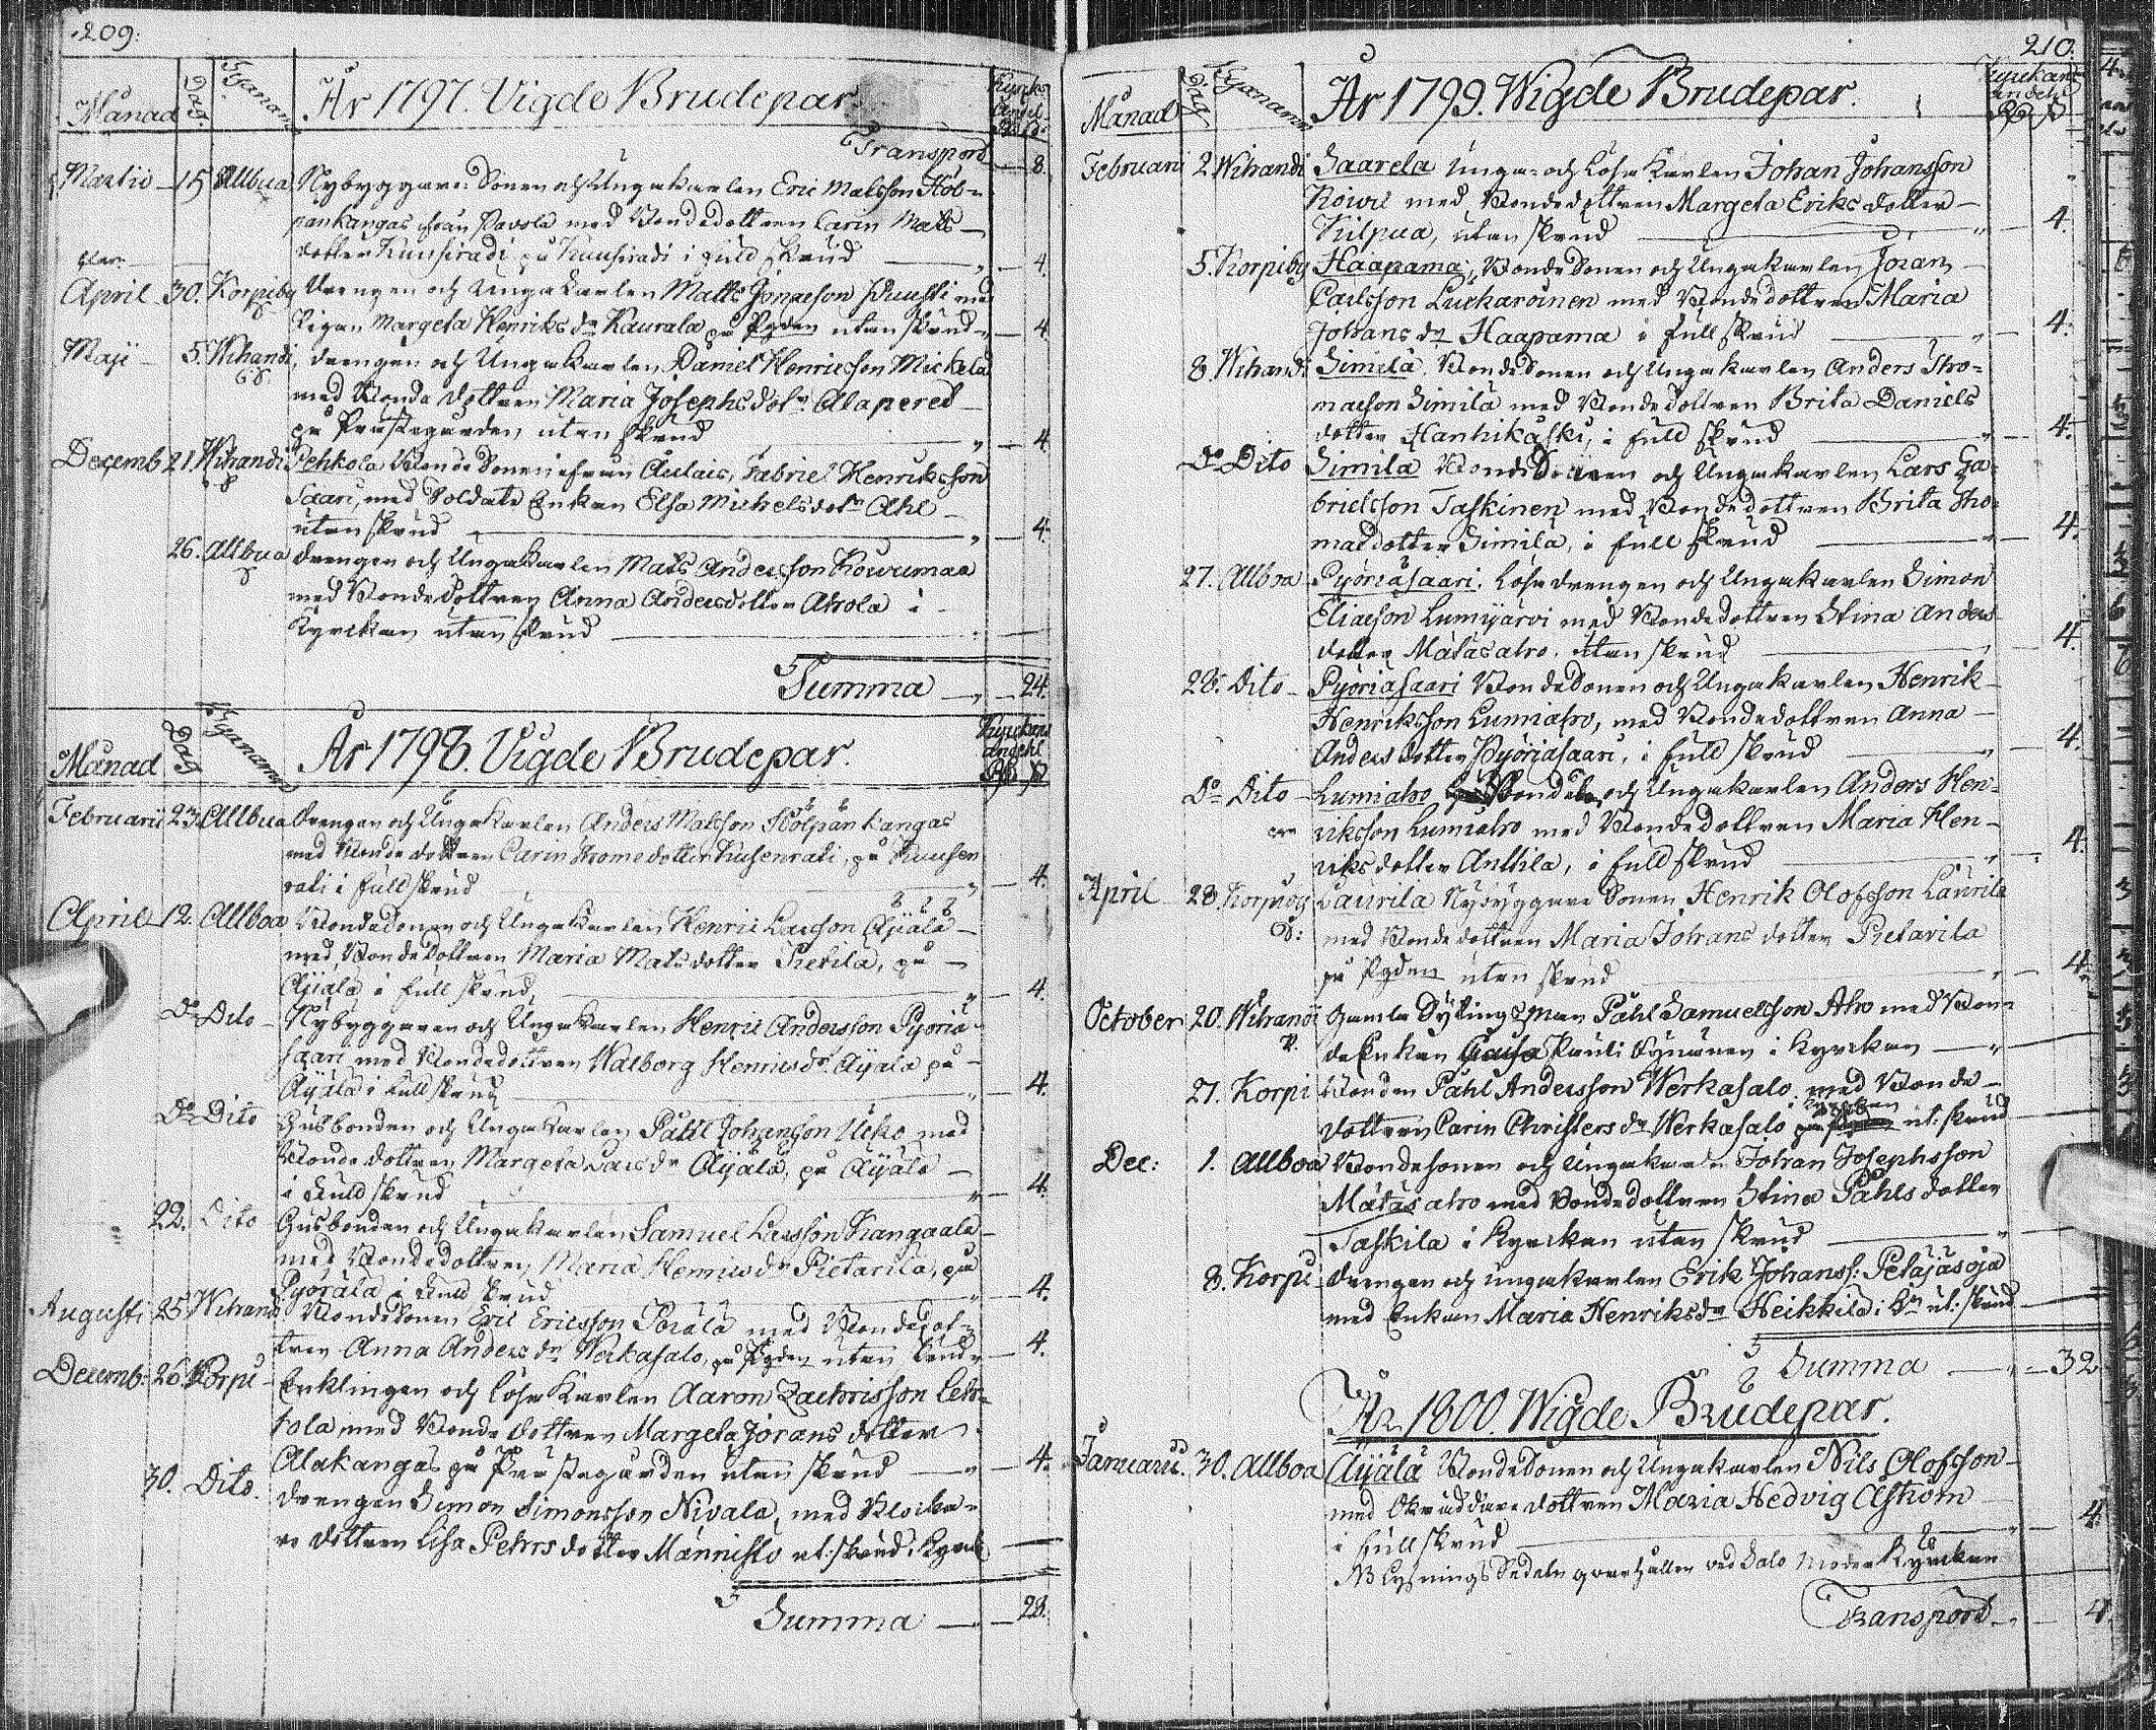 209.
Månad Dag. Bynamn År 1797. Vigde Brudepar. Kyrck. andel
Transport — 8.
Martii — 15 Allbua Nybyggare Sonen och Ungakarlen Eric Matsson Höl=
pänkangas från Pavola med Bondedottren Carin Mats
dotter Kuusiradi på Kuusiradi i full skrud — 4.
April 30. Korpiby Drengen och Ungakarlen Matts Jonasson med
Pigan Margeta Henriks dr Kaurala på Pgden utan skrud — 4
Maji 5. Wihandi Drengen och Ungakarlen Daniel Henricsson Mickela
med Bonde dottren Maria Josephs dotr Alapered
på Prästegården utan skrud — 4
Decemb 21. Wihandi Pehkola Bonde Sonen ifrån Gabriel Henriksson
Saari, med Soldats Enkan Elsa Michelsdotr Ahl
utan skrud — 4.
26. Allbua Drengen och Ungakarlen Mats Andersson Kowumaa
med Bondedottren Anna Andersdotter Ahola i
Kyrckan utan skrud —
Summa — 24.
Månad Dag Bynamn År 1798. Vigde Brudepar. Kyrckans andehl
Februarii 23. Allbua Drengen och Ungakarlen Anders Matsson Hölpänkangas
med Bonde dottren Carin Thomedotter Kusenrati, på Kuusen
rati i full skrud — 4.
April 12. Allboa Bondesonen och Ungakarlen Henric Larsson Äijälä
med Bondedottren Maria Matsdotter Pietilä, på
Äijälä i full skrud — 4.
Do Dito Nybyggaren och Ungakarlen Henric Andersson Pyöriä
saari med Bondedottren Walborg Henricsdr Äijälä på
Äijälä i full skrud — 4.
Do Dito Husbonden och Ungakarlen Påhl Johansson Ucko med
Bonde dottren Margeta Larsdr Äijälä, på Äijälä
i full skrud — 4.
22. Dito Husbonden och Ungakarlen Samuel Larsson Kangaala
med Bondedottren Maria Henricsdr Pietarila, på
Pyörälä i full skrud — 4.
Augusti 25 Wihandi Bondesonen Eric Ericsson Pörälä med Bondedot=
tren Anna Anders dr Werkasalo, på Pgden utan skrud — 4.
Decemb: 26. Korpi Enklingen och Löse Karlen Aaron Zachrisson Leh=
tola med Bonde dottren Margeta Jörans dotter
Alakangas på Prästegården utan skrud — 4.
30. Dito. Drengen Simon Simonsson Nivala, med Klocka=
re dottren Lisa Pehrs dotter Männistö ut: skrud i Kyrck —
Summa — 28.
210.
Månad Dag Bynamn År 1799. Wigde Brudepar. Kyrckans andehl
Februarii 2 Wihandi Saarela Unga= och Lösa Karlen Johan Johansson
Koivu med Bondedottren Margeta Eriks dotter
Kilpua, utan skrud — 4.
5. Korpiby Haapama, Bonde Sonen och Ungakarlen Jöran
Carlsson Luckaroinen med Bondedottren Maria
Johans dr Haapama i full skrud — 4.
8. Wihandi Similä. Bondesonen och Ungakarlen Anders Tho=
masson Similä med Bondedottren Brita Daniels
dotter Hanhikaski, i full skrud — 4.
Do Dito Similä Bonde Sonen och Ungakarlen Lars Ga=
brielsson Taskinen med Bondedottren Brita Tho=
masdotter Similä, i full skrud — 4.
27. Allboa Pyöriäsaari. Löse drengen och Ungakarlen Simon
Eliasson Lumijärvi med Bondedottren Stina Anders
dotter Mätäsaho. utan skrud — 4.
28. Dito Pyöriäsaari Bondesonen och Ungakarlen Henrik
Henriksson Lumiaho, med Bondedottren Anna
Anders dotter Pyöriäsaari, i full skrud — 4.
Do Dito Lumiaho och Ungakarlen Anders Hen=
riksson Lumiaho med Bondedottren Maria Hen=
riks dotter Anttila, i full skrud — 4.
April 28. Korpiby Laurila Nybyggare Sonen Henrik Olofsson Laurila
med Bondedottren Maria Johans dotter Pietarila
på Pgden utan skrud — 4.
October 20. Wihandi Gamla Sytingsman Påhl Samuelsson Aho med Bon=
de Enkan i Kyrckan —
27. Korpi Bonden Påhl Andersson Werkasalo, med Bonde
dottren Carin Christers dr Werkasalo i Kyrckan ut: skrud
Dec: 1. Allboa Bondesonen och Ungakarlen Johan Josephsson
Mätäsaho med Bondedottren Stina Påhls dotter
Taskila i Kyrckan utan skrud —
8. Korpi Drengen och ungakarlen Erik Johanss: Petäjäsoja
med Enkan Maria Henriksdr Heikkilä i ut: skrud
Summa — 32
År 1800. Wigde Brudepar.
Januarii. 30. Allboa Äijälä Bondesonen och Ungakarlen Nils Olofsson
med dottren Maria Hedvig Åström
i full skrud — 4.
NB Lysnings Sedeln qvarhållen ved Salo Moder Kyrckan
Transport — 4.